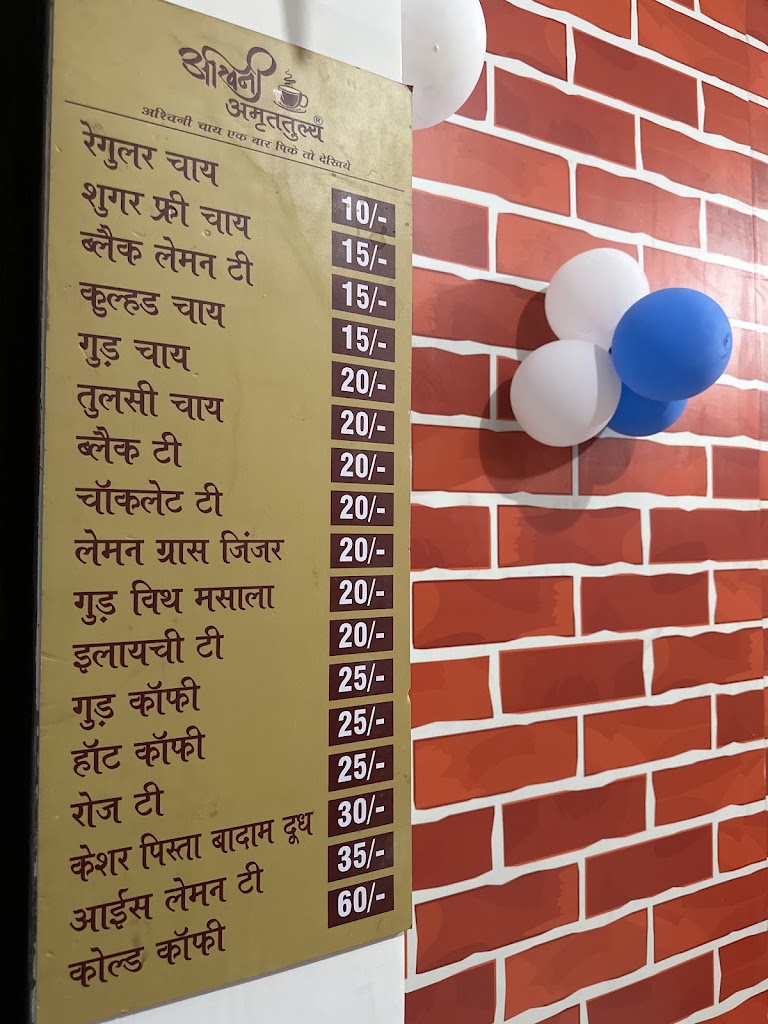 अश्विनी
अमृततुल्य®
अश्विनी चाय एक बार पिके तो देखिये
रेगुलर चाय 10/-
शुगर फ्री चाय 15/-
ब्लैक लेमन टी 15/-
कुल्हड चाय 15/-
गुड़ चाय 20/-
तुलसी चाय 20/-
ब्लैक टी 20/-
चॉकलेट टी 20/-
लेमन ग्रास जिंजर 20/-
गुड़ विथ मसाला 20/-
इलायची टी 20/-
गुड़ कॉफी 25/-
हॉट कॉफी 25/-
रोज टी 25/-
केशर पिस्ता बादाम दूध 30/-
आईस लेमन टी 35/-
कोल्ड कॉफी 60/-